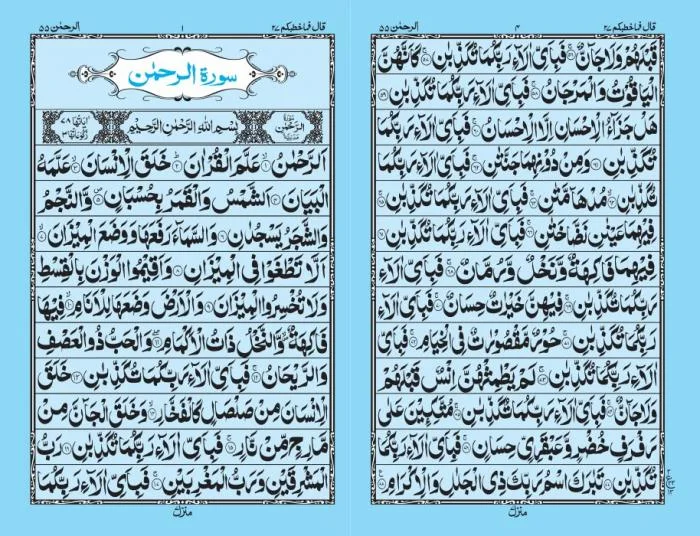 قال فماخطبكم ٢٧ ١ الرحمٰن ٥٥
سورة الرحمٰن
سُوْرَةُ الرَّحْمٰنِ بِسْمِ اللهِ الرَّحْمٰنِ الرَّحِيْمِ اٰيَاتُهَا ٧٨ رُكُوْعَاتُهَا ٣
اَلرَّحْمٰنُ ۙ﴿۱﴾ عَلَّمَ الْقُرْاٰنَ ؕ﴿۲﴾ خَلَقَ الْاِنْسَانَ ۙ﴿۳﴾ عَلَّمَهُ
الْبَيَانَ ﴿۴﴾ اَلشَّمْسُ وَالْقَمَرُ بِحُسْبَانٍ ۪﴿۵﴾ وَّالنَّجْمُ
وَالشَّجَرُ يَسْجُدٰنِ ﴿۶﴾ وَالسَّمَآءَ رَفَعَهَا وَوَضَعَ الْمِيْزَانَ ۙ﴿۷﴾
اَلَّا تَطْغَوْا فِى الْمِيْزَانِ ﴿۸﴾ وَاَقِيْمُوا الْوَزْنَ بِالْقِسْطِ
وَلَا تُخْسِرُوا الْمِيْزَانَ ﴿۹﴾ وَالْاَرْضَ وَضَعَهَا لِلْاَنَامِ ۙ﴿۱۰﴾ فِيْهَا
فَاكِهَةٌ ۪ۙ وَّالنَّخْلُ ذَاتُ الْاَكْمَامِ ۖ﴿۱۱﴾ وَالْحَبُّ ذُو الْعَصْفِ
وَالرَّيْحَانُ ۚ﴿۱۲﴾ فَبِاَىِّ اٰلَآءِ رَبِّكُمَا تُكَذِّبٰنِ ﴿۱۳﴾ خَلَقَ
الْاِنْسَانَ مِنْ صَلْصَالٍ كَالْفَخَّارِ ۙ﴿۱۴﴾ وَخَلَقَ الْجَآنَّ مِنْ
مَّارِجٍ مِّنْ نَّارٍ ۚ﴿۱۵﴾ فَبِاَىِّ اٰلَآءِ رَبِّكُمَا تُكَذِّبٰنِ ﴿۱۶﴾ رَبُّ
الْمَشْرِقَيْنِ وَرَبُّ الْمَغْرِبَيْنِ ۚ﴿۱۷﴾ فَبِاَىِّ اٰلَآءِ رَبِّكُمَا
منزل
قال فماخطبكم ٢٧ ۴ الرحمٰن ٥٥
قَبْلَهُمْ وَلَا جَآنٌّ ۚ﴿۵۶﴾ فَبِاَىِّ اٰلَآءِ رَبِّكُمَا تُكَذِّبٰنِ ۚ﴿۵۷﴾ كَاَنَّهُنَّ
الْيَاقُوْتُ وَالْمَرْجَانُ ۚ﴿۵۸﴾ فَبِاَىِّ اٰلَآءِ رَبِّكُمَا تُكَذِّبٰنِ ﴿۵۹﴾
هَلْ جَزَآءُ الْاِحْسَانِ اِلَّا الْاِحْسَانُ ۚ﴿۶۰﴾ فَبِاَىِّ اٰلَآءِ رَبِّكُمَا
تُكَذِّبٰنِ ﴿۶۱﴾ وَمِنْ دُوْنِهِمَا جَنَّتٰنِ ۚ﴿۶۲﴾ فَبِاَىِّ اٰلَآءِ رَبِّكُمَا
تُكَذِّبٰنِ ۙ﴿۶۳﴾ مُدْهَآمَّتٰنِ ۚ﴿۶۴﴾ فَبِاَىِّ اٰلَآءِ رَبِّكُمَا تُكَذِّبٰنِ ۚ﴿۶۵﴾
فِيْهِمَا عَيْنٰنِ نَضَّاخَتٰنِ ۚ﴿۶۶﴾ فَبِاَىِّ اٰلَآءِ رَبِّكُمَا تُكَذِّبٰنِ ﴿۶۷﴾
فِيْهِمَا فَاكِهَةٌ وَّنَخْلٌ وَّرُمَّانٌ ۚ﴿۶۸﴾ فَبِاَىِّ اٰلَآءِ
رَبِّكُمَا تُكَذِّبٰنِ ۚ﴿۶۹﴾ فِيْهِنَّ خَيْرٰتٌ حِسَانٌ ۚ﴿۷۰﴾ فَبِاَىِّ اٰلَآءِ
رَبِّكُمَا تُكَذِّبٰنِ ۚ﴿۷۱﴾ حُوْرٌ مَّقْصُوْرٰتٌ فِى الْخِيَامِ ۚ﴿۷۲﴾ فَبِاَىِّ
اٰلَآءِ رَبِّكُمَا تُكَذِّبٰنِ ۚ﴿۷۳﴾ لَمْ يَطْمِثْهُنَّ اِنْسٌ قَبْلَهُمْ
وَلَا جَآنٌّ ۚ﴿۷۴﴾ فَبِاَىِّ اٰلَآءِ رَبِّكُمَا تُكَذِّبٰنِ ۚ﴿۷۵﴾ مُتَّكِئِيْنَ عَلٰى
رَفْرَفٍ خُضْرٍ وَّعَبْقَرِىٍّ حِسَانٍ ۚ﴿۷۶﴾ فَبِاَىِّ اٰلَآءِ رَبِّكُمَا
تُكَذِّبٰنِ ﴿۷۷﴾ تَبٰرَكَ اسْمُ رَبِّكَ ذِى الْجَلٰلِ وَالْاِكْرَامِ ﴿۷۸﴾
منزل